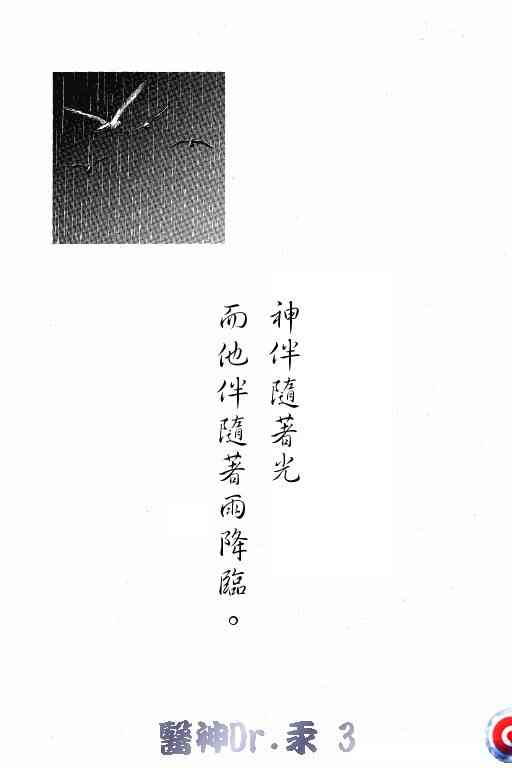 神伴隨著光
而他伴隨著雨降臨。
醫神Dr.汞 3